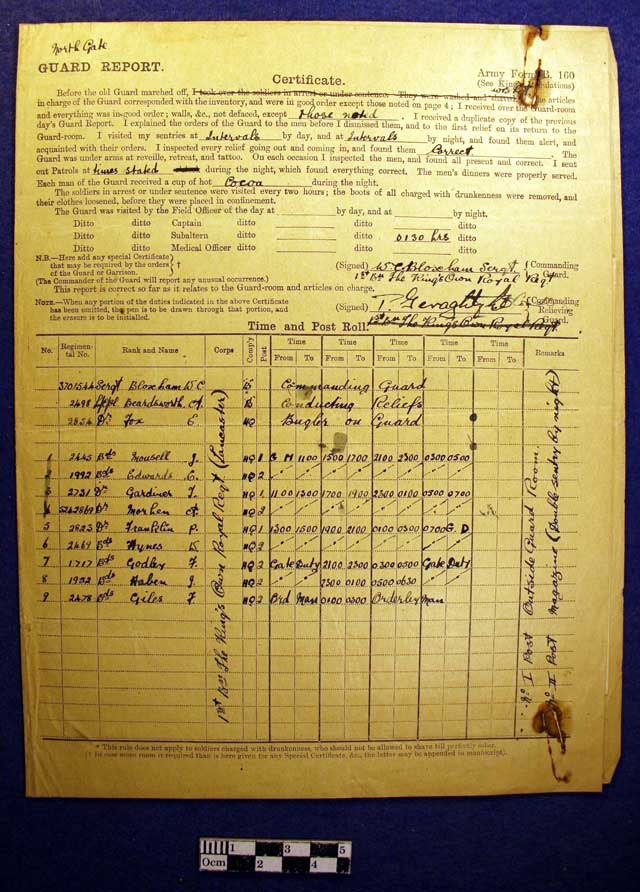 North Gate
GUARD REPORT.
Certificate.
Army Form B. 160
(See King's Regulations)
Before the old Guard marched off, I took over the soldiers in arrest or under sentence. They were washed and shaved.* The articles
in charge of the Guard corresponded with the inventory, and were in good order except those noted on page 4; I received over the Guard-room
and everything was in good order; walls, &c., not defaced, except those noted. I received a duplicate copy of the previous
day's Guard Report. I explained the orders of the Guard to the men before I dismissed them, and to the first relief on its return to the
Guard-room. I visited my sentries at Intervals by day, and at Intervals by night, and found them alert, and
acquainted with their orders. I inspected every relief going out and coming in, and found them Correct. The
Guard was under arms at reveille, retreat, and tattoo. On each occasion I inspected the men, and found all present and correct. I sent
out Patrols at times stated during the night, which found everything correct. The men's dinners were properly served.
Each man of the Guard received a cup of hot Cocoa during the night.
The soldiers in arrest or under sentence were visited every two hours; the boots of all charged with drunkenness were removed, and
their clothes loosened, before they were placed in confinement.
The Guard was visited by the Field Officer of the day at by day, and at by night.
Ditto ditto Captain ditto ditto ditto
Ditto ditto Subaltern ditto ditto 0130 hrs ditto
Ditto ditto Medical Officer ditto ditto ditto
N.B.—Here add any special Certificate
that may be required by the orders
of the Guard or Garrison. †
(Signed) W C Bloxham Sergt. Commanding Guard.
1st Bn The King's Own Royal Regt
(The Commander of the Guard will report any unusual occurrence.)
This report is correct so far as it relates to the Guard-room and articles on charge.
NOTE.—When any portion of the duties indicated in the above Certificate
has been omitted, the pen is to be drawn through that portion, and
the erasure is to be initialled.
(Signed) T. Geraghty Commanding Relieving Guard.
1st Bn The King's Own Royal Regt.
Time and Post Roll.
No. Regimental No. Rank and Name Corps Comp'y Post Time Time Time Time Time Remarks
From To From To From To From To From To
3701544 Sergt Bloxham W C B. Commanding Guard
2498 L/Cpl Beardsworth A. B. Conducting Reliefs
2854 Dr Fox C. HQ Bugler on Guard
1 2445 Bds Mousell J. HQ 1 G M 1100 1500 1700 2100 2300 0300 0500
2 1992 Bds Edwards C. HQ 2
3 2731 Dr Gardiner T. HQ 1 1100 1300 1700 1900 2300 0100 0500 0700
4 5242869 Dr Morhen A. HQ 2
5 2823 Dr Franklin P. HQ 1 1300 1500 1900 2100 0100 0300 0700 G. D
6 2469 Bds Hynes D. HQ 2
7 1717 Bds Godley F. HQ 2 Gate Duty 2100 2300 0300 0500 Gate Duty
8 1932 Bds Haben J. HQ 2 2300 0100 0500 0630
9 2478 Bds Giles F. HQ 2 Ord Man 0100 0300 Orderley Man
1st Bn The King's Own Royal Regt (Lancaster)
No I Post Outside Guard Room.
No II Post Magazine (Double sentry by night)
* This rule does not apply to soldiers charged with drunkenness, who should not be allowed to shave till perfectly sober.
(† In case more room is required than is here given for any Special Certificate, &c., the latter may be appended in manuscript).
0cm 1 2 3 4 5